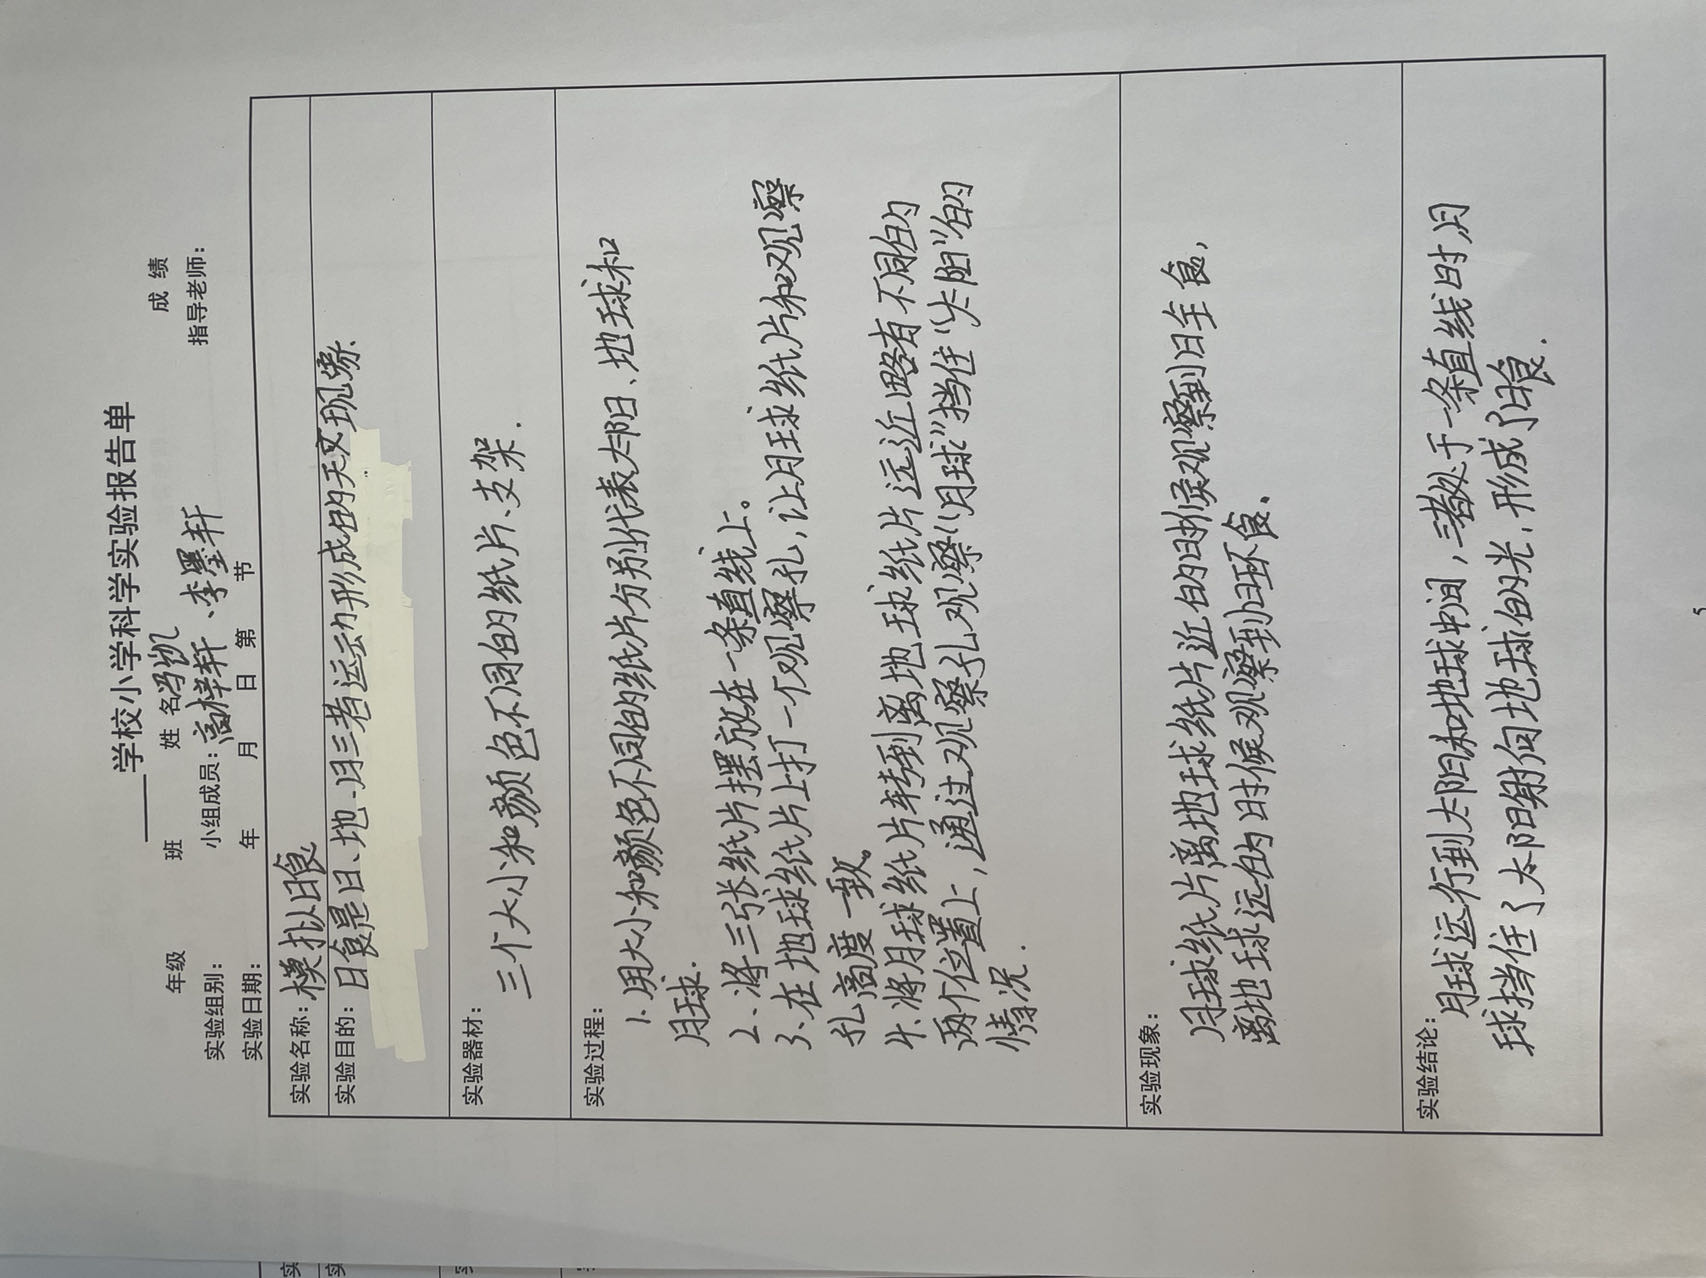 学校小学学科学实验报告单
年级 班 姓名冯凯 成绩
实验组别： 小组成员：高梓轩、李墨轩 指导老师：
实验日期： 年 月 日 第 节
实验名称：模拟日食
实验目的：日食是日、地、月三者运动形成的天文现象
实验器材：
三个大小和颜色不同的纸片、支架．
实验过程：
1.用大小和颜色不同的纸片分别代表太阳、地球和
月球．
2、将三张纸片摆放在一条直线上。
3、在地球纸片上打一个观察孔，让月球纸片和观察
孔高度一致。
4.将月球纸片转到离地球纸片远近略有不同的
两个位置上，通过观察孔观察“月球”挡住“太阳”的
情况．
实验现象：
月球纸片离地球纸片近的时候观察到日全食，
离地球远的时候观察到日环食、
实验结论：
月球运行到太阳和地球中间，三者处于一条直线时，月
球挡住了太阳射向地球的光，形成了日食．
5
实
实
实